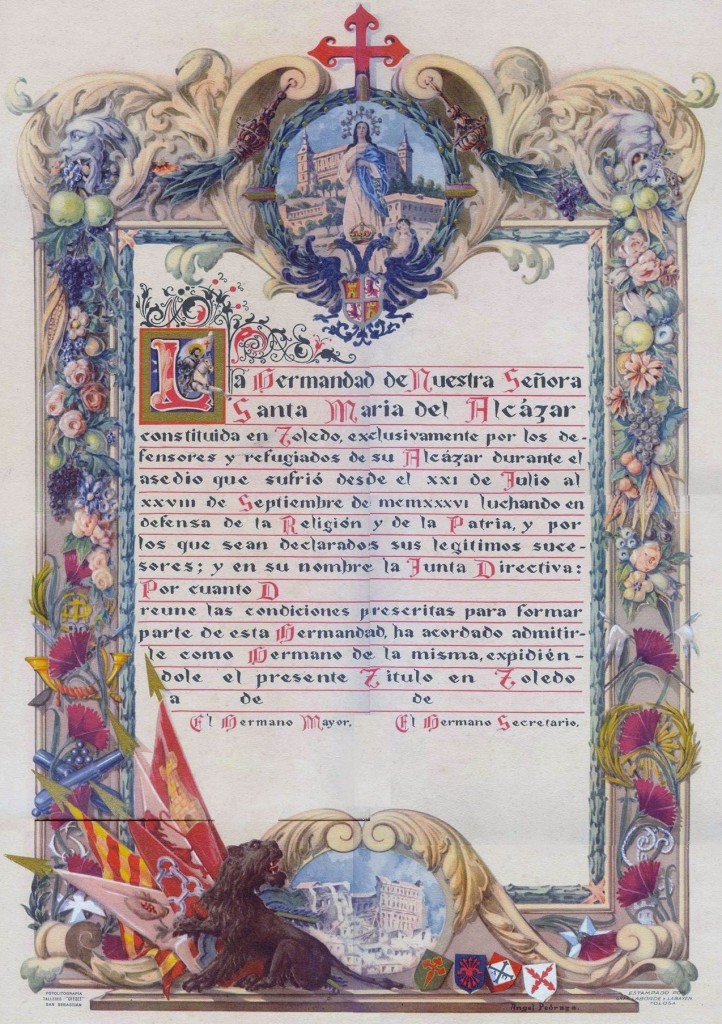 La Hermandad de Nuestra Señora
Santa Maria del Alcázar
constituida en Toledo, exclusivamente por los de-
fensores y refugiados de su Alcázar durante el
asedio que sufrió desde el XXI de Julio al
XXVIII de Septiembre de MCMXXXVI luchando en
defensa de la Religión y de la Patria, y por
los que sean declarados sus legítimos suce-
sores; y en su nombre la Junta Directiva:
Por cuanto D
reune las condiciones prescritas para formar
parte de esta Hermandad, ha acordado admitir-
le como Hermano de la misma, expidién-
dole el presente Título en Toledo
a de de
El Hermano Mayor. El Hermano Secretario.
FOTOLITOGRAFIA
TALLERES "OFFSET"
SAN SEBASTIAN
Ángel Pedraza.
ESTAMPADO POR
LABORDE Y LABAYEN
TOLOSA